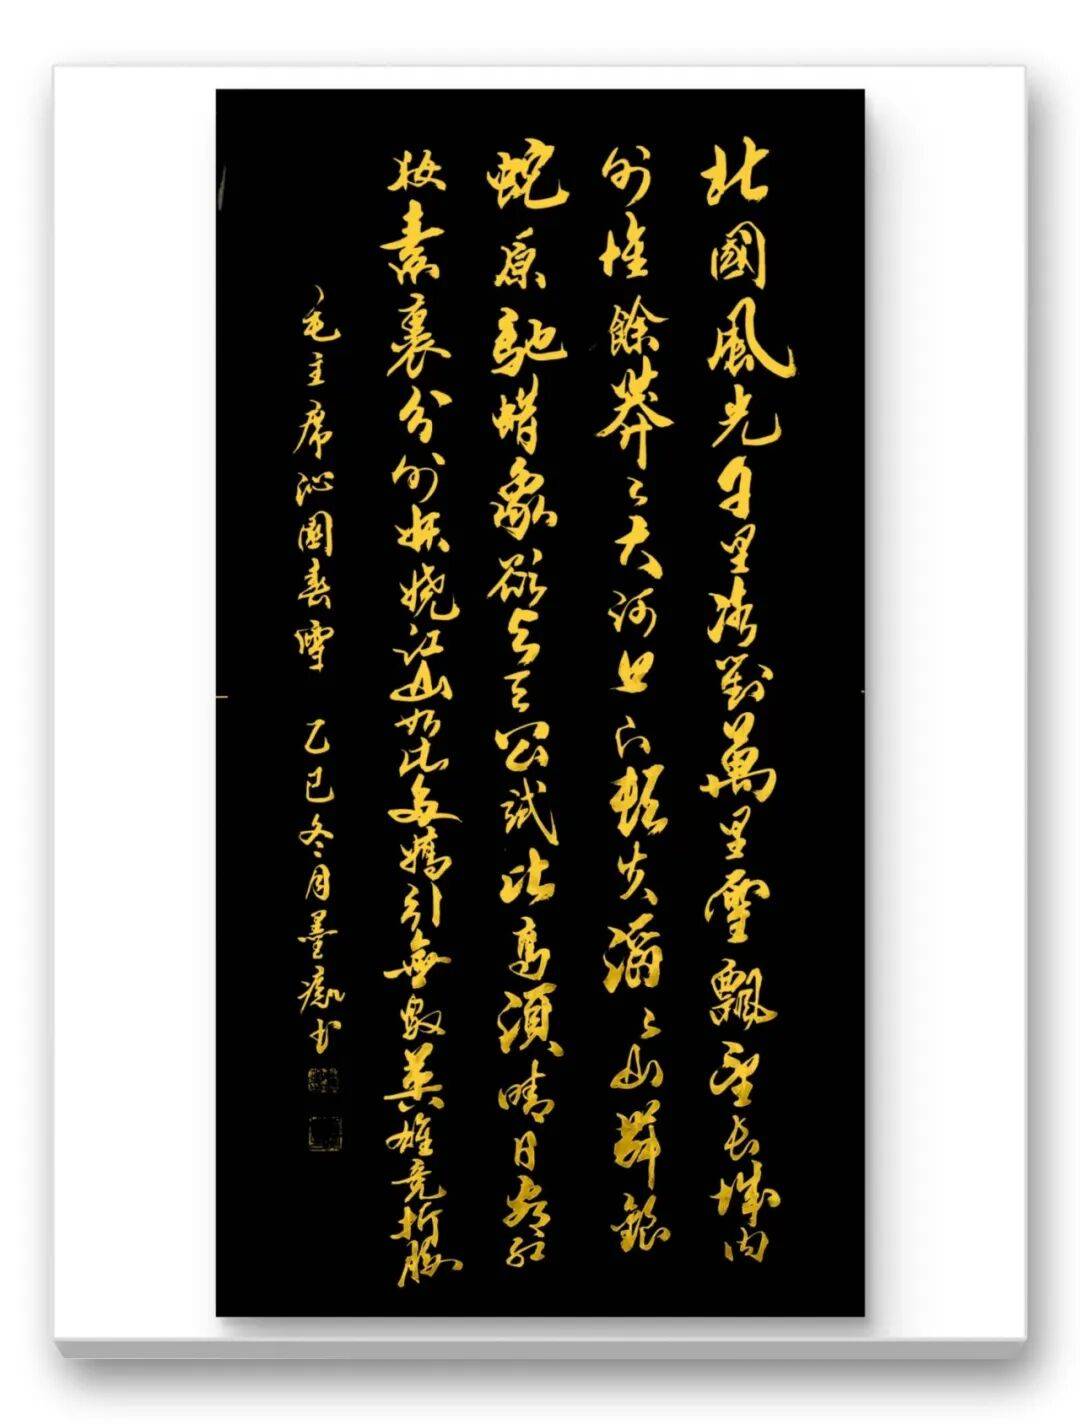 北國風光千里冰封萬里雪飄望長城内
外惟餘莽々大河上下頓失滔々山舞銀
蛇原馳蜡象欲与天公試比高須晴日看紅
妝素裹分外妖嬈江山如此多嬌引無數英雄竞折腰
毛主席沁園春雪 乙巳冬月墨癡书